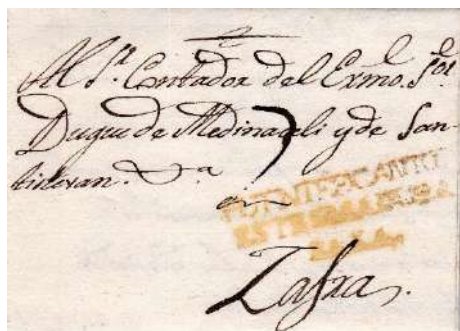 Al S.ʳ Contador del Exmo. S.ᵒʳ
Duque de Medinaceli y de San-
tistevan. &.ª
7
en
FUENTE DE CANTO
ESTREMADURA
BAXA.
Zafra.